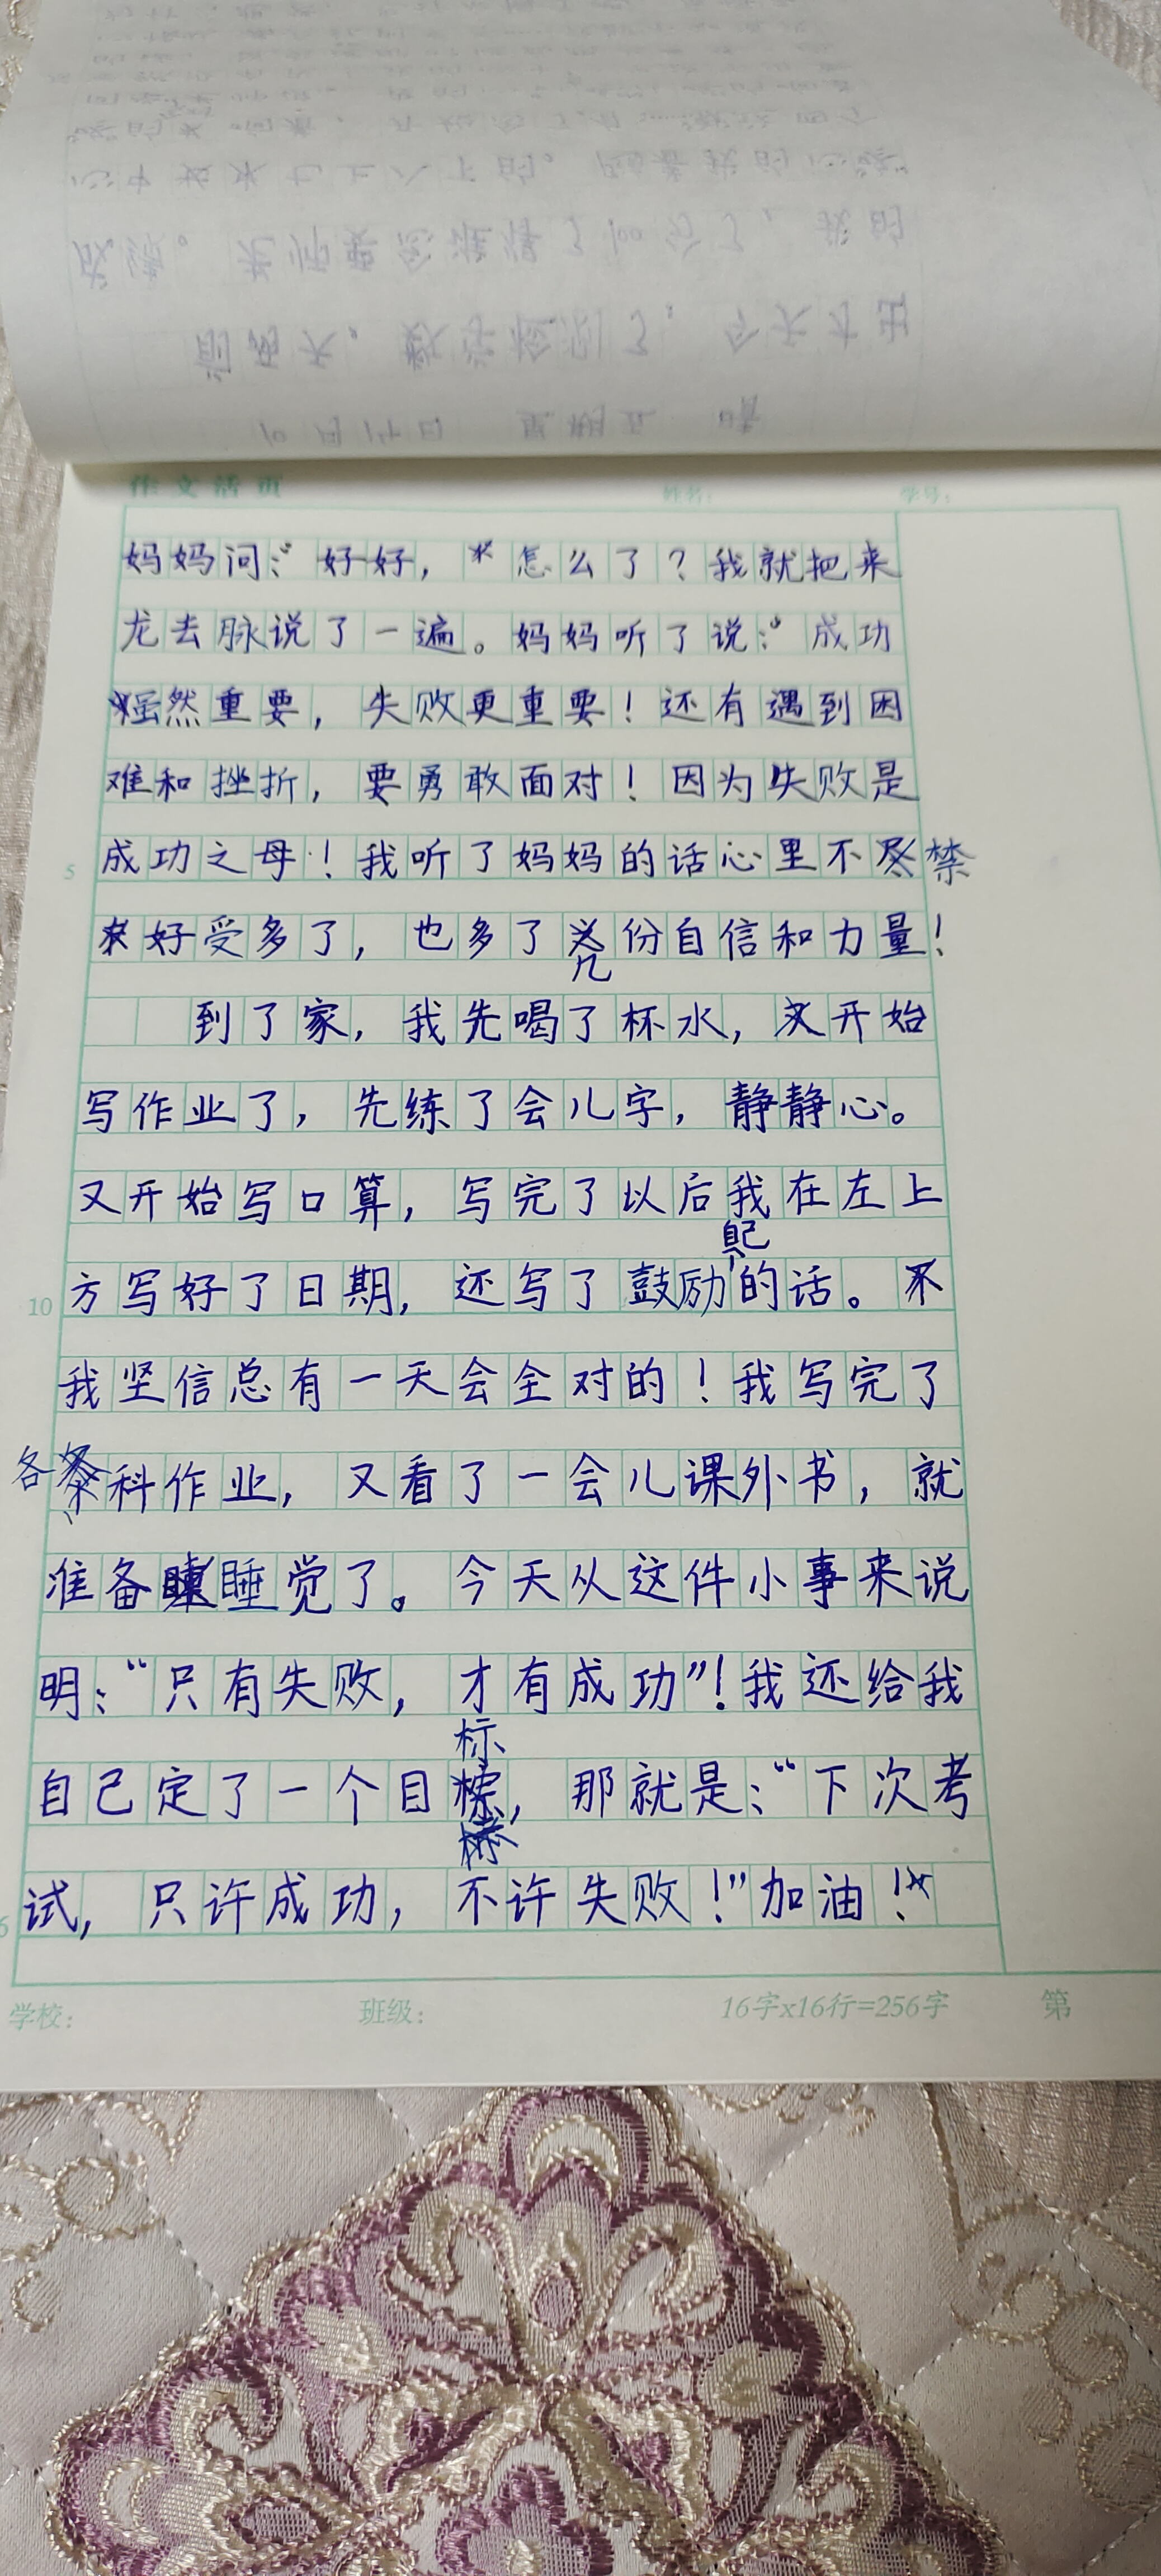 作文活页 姓名: 学号:
妈妈问:“好好,怎么了?我就把来
龙去脉说了一遍。妈妈听了说:“成功
虽然重要,失败更重要!还有遇到困
难和挫折,要勇敢面对!因为失败是
5 成功之母!我听了妈妈的话心里不禁
好受多了,也多了几份自信和力量!
到了家,我先喝了杯水,又开始
写作业了,先练了会儿字,静静心。
又开始写口算,写完了以后我在左上
10 方写好了日期,还写了鼓励自己的话。
我坚信总有一天会全对的!我写完了
各科作业,又看了一会儿课外书,就
准备睡觉了。今天从这件小事来说
明:“只有失败,才有成功”!我还给我
自己定了一个目标,那就是:“下次考
试,只许成功,不许失败!”加油!
学校: 班级: 16字x16行=256字 第